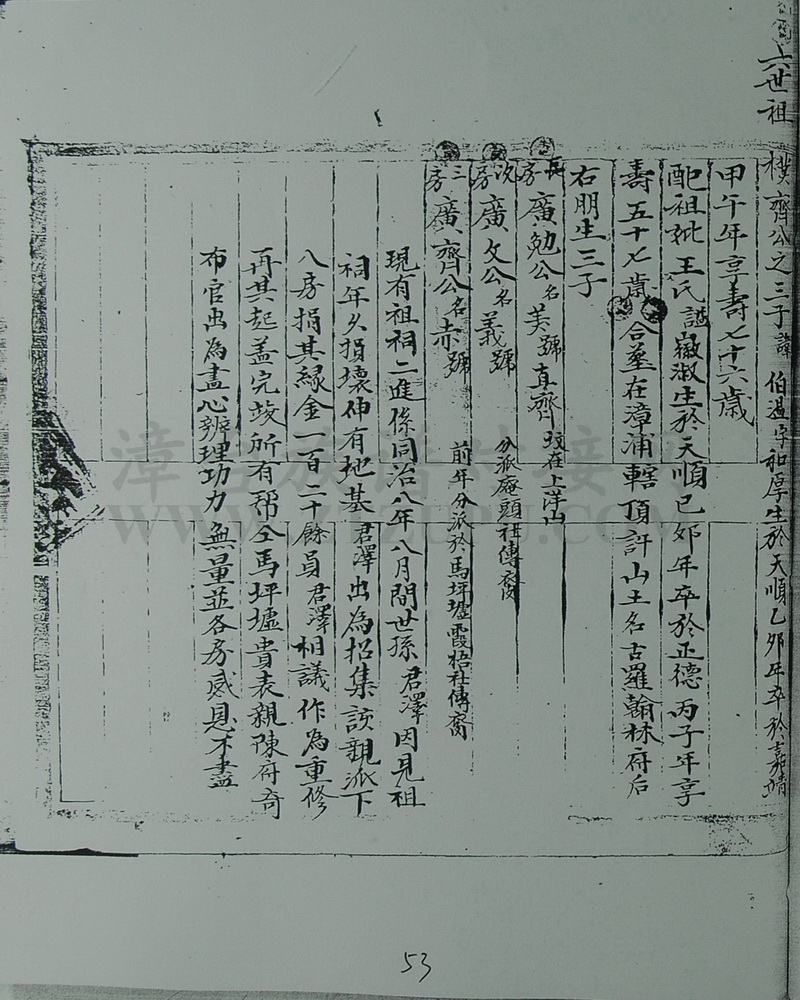 六世祖
樸齊公之三子諱伯溫字和厚生於天順己夘年卒於嘉靖
甲午年享壽七十六歲
配祖妣王氏謚徽淑生於天順己夘年卒於正德丙子年享
壽五十七歲合塟在漳浦轄頂許山土名古羅翰林府后
右朋生三子
長房廣勉公名美號直齊 坟在上洋山
次房廣文公名義號 分派庵頭社傳裔
三房廣齊公名赤號 前年分派於馬坪墟霞梧社傳裔
現有祖祠二進係同治八年八月間世孫君澤因見祖
祠年久損壞伸有地基君澤出為招集該親派下
八房捐其縁金一百二十餘員君澤相議作為重修
再共起盖完竣所有帮仝馬坪墟貴表親陳府奇
布官出為盡心辨理功力無量並各房感恩不盡
53